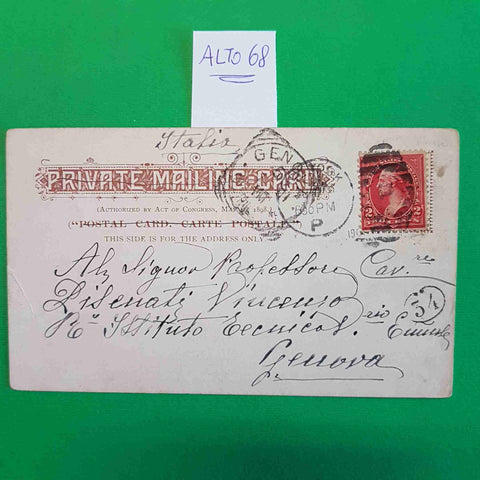 ALTO 68
Italia
PRIVATE MAILING CARD
(AUTHORIZED BY ACT OF CONGRESS, MAY 19, 1898.)
("POSTAL CARD. CARTE POSTALE.")
THIS SIDE IS FOR THE ADDRESS ONLY
GEN
630 PM
P
2
Al Signor Professore Cav.re
Pisenati Vincenzo
Ro Istituto Tecnico
34
Genova